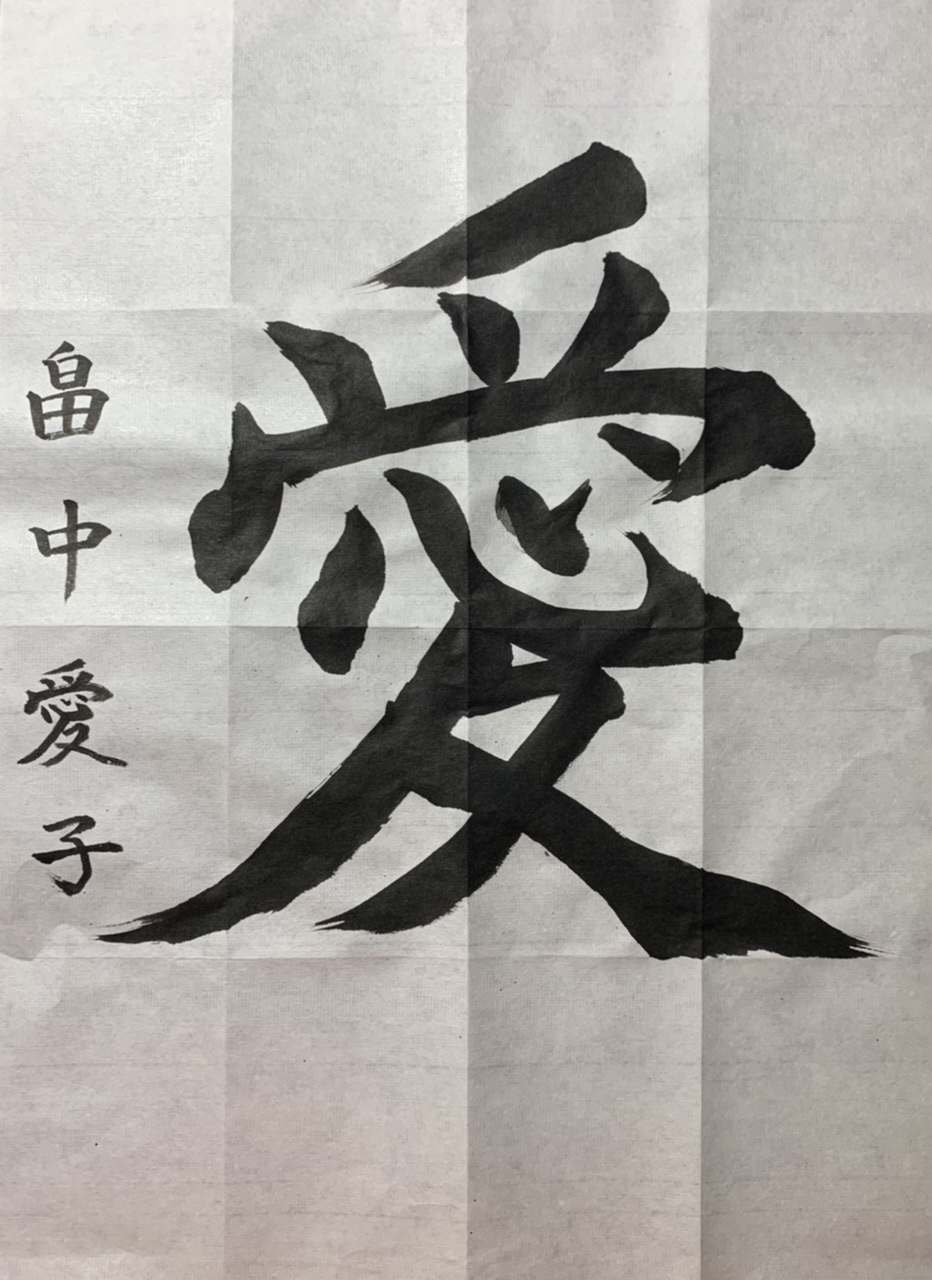 愛
畠中愛子